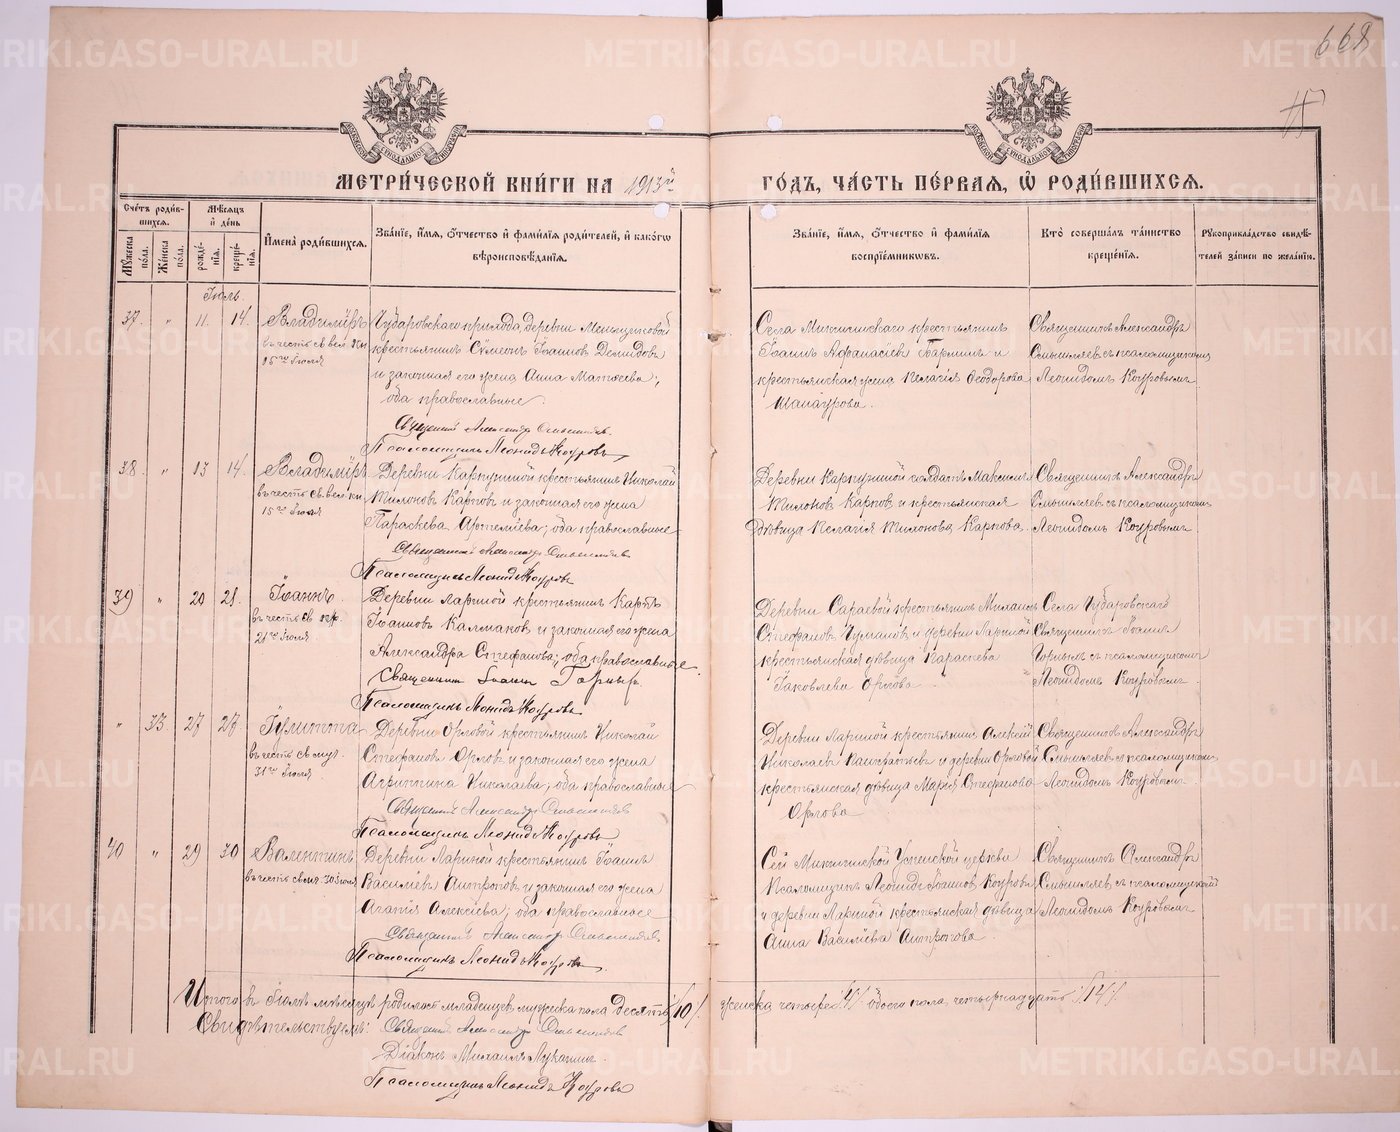 668
МЕТРИ́ЧЕСКОЙ КНИ́ГИ НА 1913й ГО́ДЪ, ЧА́СТЬ ПЕ́РВАЯ, Ѿ РОДИ́ВШИХСѦ.
Сче́тъ роди́вшихся.
Мѣ́сяцъ и҆ де́нь
Мꙋ́жеска по́ла.
Же́нска по́ла.
рожде́нїя.
креще́нїя.
И҆́мена роди́вшихся.
Зва́нїе, и҆́мя, ѻ҆́тчество и҆ фами́лїя роди́телей, и҆ како́гѡ вѣроисповѣ́данїя.
Зва́нїе, и҆́мя, ѻ҆́тчество и҆ фами́лїя воспрїе́мникѡвъ.
Кто̀ соверша́лъ та́инство креще́нїя.
Рꙋкоприкла́дство свидѣ́телей за́писи по жела́нїю.
Іюль.
37. " 11. 14.
Владиміръ
въ честь св. вел. кн.
15го Іюля
Чубаровскаго прихода, деревни Меньщиковой
крестьянинъ Сѵмеонъ Іоанновъ Демидовъ
и законная его жена Анна Матѳеева;
оба православные.
Священникъ Александръ Смышляевъ.
Псаломщикъ Леонидъ Коуровъ
Іоаннъ Афанасіевъ и
крестьянская жена Пелагія Ѳеодорова
Священникъ Александръ
Смышляевъ съ псаломщикомъ
Леонидомъ Коуровымъ
38. " 13 14.
Владиміръ
въ честь св. вел. кн.
15го Іюля
Деревни крестьянинъ Николай
Тихоновъ Карповъ и законная его жена
Параскева Артеміева; оба православные
Священникъ Александръ Смышляевъ
Псаломщикъ Леонидъ Коуровъ
Деревни солдатъ Максимъ
Тихоновъ Карповъ и крестьянская
дѣвица Пелагія Тихонова Карпова.
Священникъ Александръ
Смышляевъ съ псаломщикомъ
Леонидомъ Коуровымъ
39 " 20 21.
Іоаннъ.
въ честь св.
21го Іюля
Деревни Лариной крестьянинъ Карпъ
Іоанновъ Калмаковъ и законная его жена
Александра Стефанова; оба православные
Священникъ Іоаннъ Горныхъ
Псаломщикъ Леонидъ Коуровъ
Деревни Сараевой крестьянинъ Михаилъ
Стефановъ Чумановъ и деревни Лариной
крестьянская дѣвица Параскева
Іаковлева Орлова
Села Чубаровскаго
Священникъ Іоаннъ
Горныхъ съ псаломщикомъ
Леонидомъ Коуровымъ.
" 33 27 27
Іулитта
въ честь св. муч.
31го Іюля
Деревни Орловой крестьянинъ Николай
Стефановъ Орловъ и законная его жена
Агриппина Николаева; оба православные
Священникъ Александръ Смышляевъ
Псаломщикъ Леонидъ Коуровъ
Деревни Лариной крестьянинъ Алексій
Николаевъ и деревни Орловой
крестьянская дѣвица Марія Стефанова
Орлова
Священникъ Александръ
Смышляевъ съ псаломщикомъ
Леонидомъ Коуровымъ.
40 " 29 30
Валентинъ
въ честь св. муч. 30 Іюля
Деревни Лариной крестьянинъ Іоаннъ
Василіевъ Антроповъ и законная его жена
Агапія Алексіева; оба православные
Священникъ Александръ Смышляевъ
Псаломщикъ Леонидъ Коуровъ
Сей Успенской церкви
Псаломщикъ Леонидъ Іоанновъ Коуровъ
и деревни Лариной крестьянская дѣвица
Анна Василіева Антропова
Священникъ Александръ
Смышляевъ съ псаломщикомъ
Леонидомъ Коуровымъ
Итого въ Іюлѣ мѣсяцѣ родилось младенцевъ мужеска пола десять /10/ женска четыре /4/ обоего пола четырнадцать /14/.
Свидѣтельствуемъ: Священникъ Александръ Смышляевъ
Діаконъ Михаилъ Луканинъ.
Псаломщикъ Леонидъ Коуровъ
METRIKI.GASO-URAL.RU